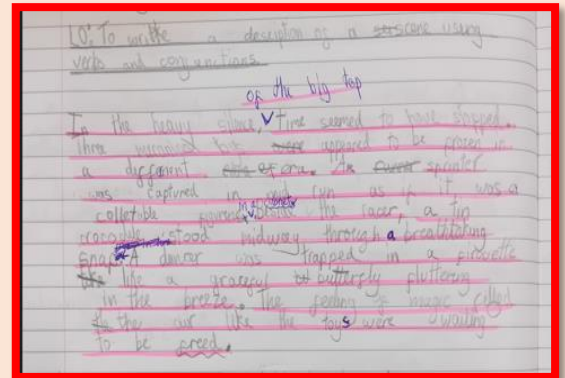 LO: To write a desciption of a scene using
verbs and conjunctions.
of the big top
In the heavy silence, time seemed to have stopped.
Three mechanical toys appeared to be frozen in
a different era. A sprinter
was captured in mid run as if it was a
colletable figurine. Beside the racer, a tin
crocodile stood midway through a breathtaking
snap. A dancer was trapped in a pirouette
like a graceful butterfly fluttering
in the breeze. The feeling of magic filled
the air like the toys were waiting
to be freed.